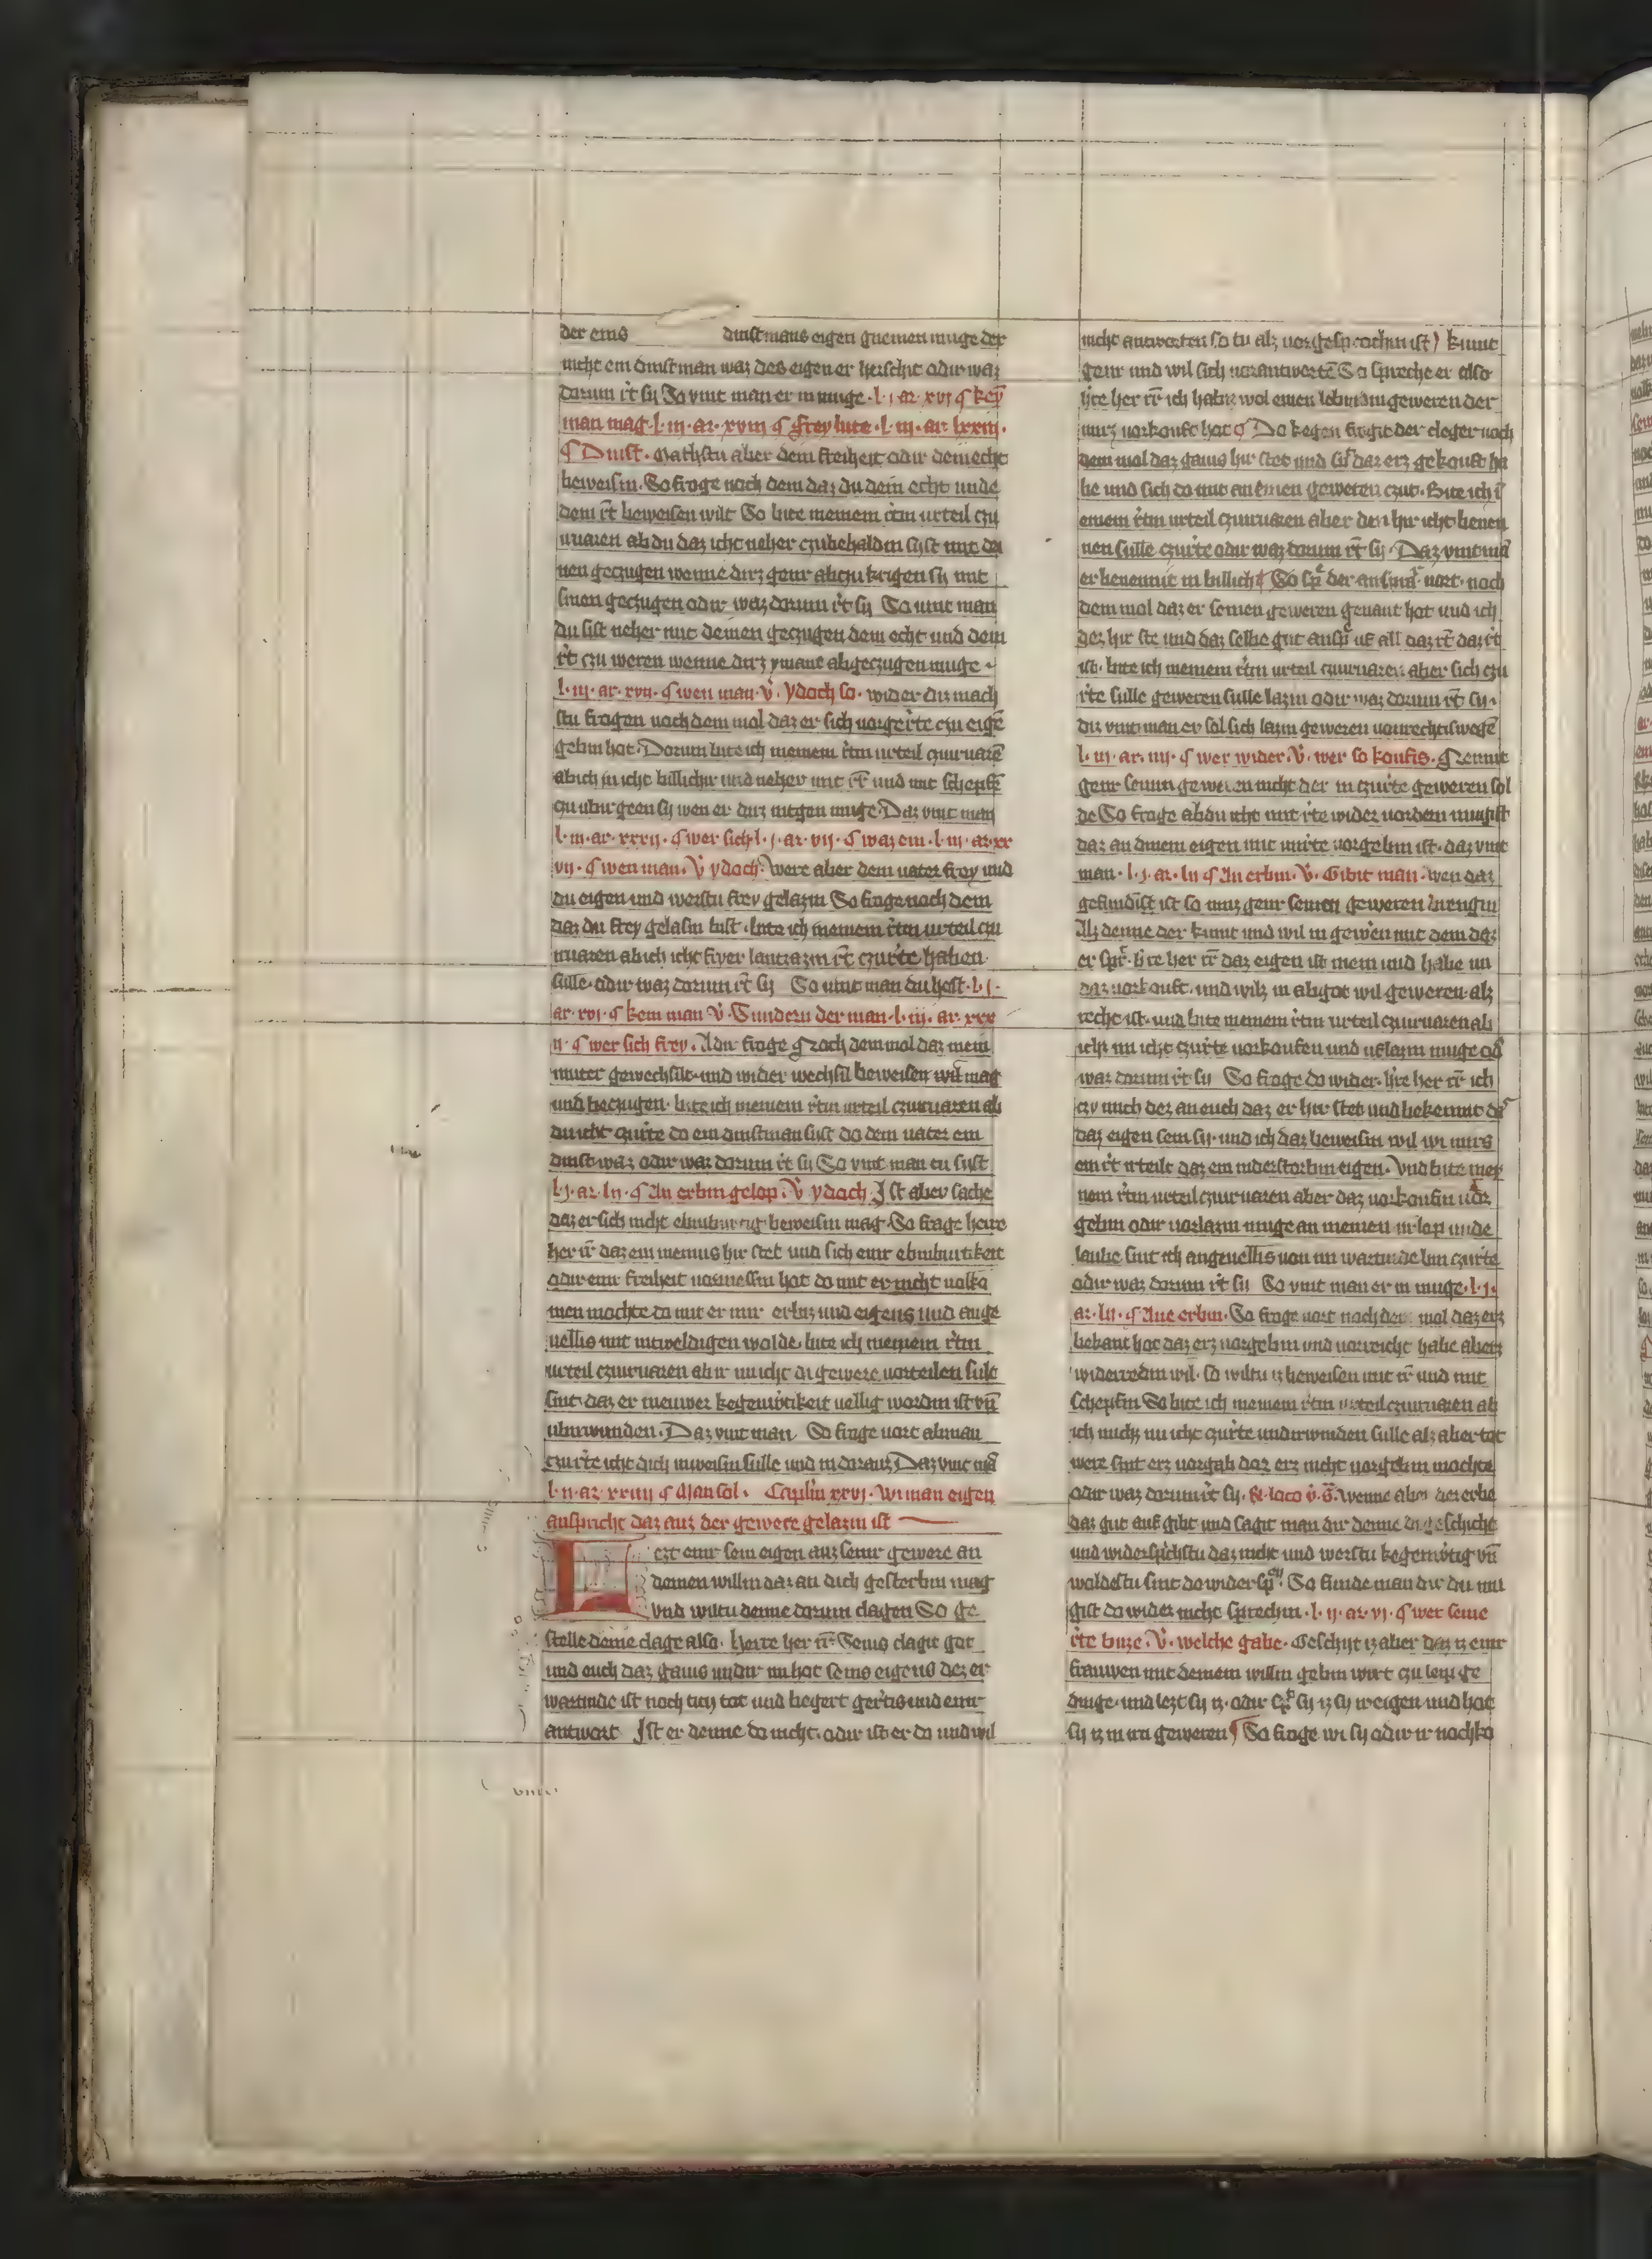 der eins dinstmans eigen gnemen muge der
nicht ein dinstman waz des eigen er heischit odir waz
dorum rt sy Jo vint man er in muge · l · i · ar · xvi ¶ key
man mag · l · iii · ar · xviii ¶ frey lute · l · iii · ar · lxxiii ·
¶ Dinst · Mathstu aber dein freiheit odir dein echt
beweisin · So froge noch dem daz du dein echt unde
dein rt beweisen wilt So bite meinem rtin urteil czu
uuaren ab du daz icht neher czubehaldin syst mit dei
nen geczugen wenne dirz genir abczu krigen sy mit
sinen geczugen odir waz dorum rt sy So vint man
du sist neher mit deinen geczugen dein echt und dein
rt czu weren wenne dirz ymant abgeczugen muge ·
l · iii · ar · xvii · ¶ wen man · v̊ · ydoch so · wider diz mach
stu frogen noch dem mol daz er sich vorgerte czu eige
gebin hot · Dorum bite ich meinem rtin urteil czuuruare
ab ich in icht billichir und neher mit rt und mit schepfe
czu ubirgeen sy wen er dirz intgen muge · Daz vint man
l · iii · ar · xxxii · ¶ wer sich · l · i · ar · vii · ¶ waz ein · l · iii · ar · xx
vii · ¶ wen man · v̊ ydoch · were aber dein vater frey und
du eigen und werstu frey gelazin So frage noch dem
daz du frey gelasin bist · bite ich meinem rtin urteil czu
uruaren ab ich icht frier lantzazin rt czurte haben
sulle · odir waz dorum rt sy So vint man du hest · l · i ·
ar · xvi · ¶ kein man v̊ · Sundern der man · l · iii · ar · xxx
ii · ¶ wer sich frey · Adir froge ¶ Noch dem mol daz mein
muter gewechsilt und wider wechsil beweisen wil mag
und beczugen · bite ich meinem rtin urteil czuuruaren ab
du icht czurte do ein dinstman syst do dein vater ein
dinst waz odir waz dorum rt sy So vint man eu syst
l · i · ar · lii · ¶ An erbin gelop · v̊ ydoch · Ist aber sache
daz er sich nicht ebinburtig beweisin mag · So frage herre
her rt daz ein meinus hir stet und sich einir ebinburtikeit
odir einir freiheit vormessin hot do mit er nicht volko
men mochte do mit er mir erbiz und eigens und ange
vellis mit intweldigen wolde · bite ich meinem rtin
urteil czuuruaren ab ir im icht di gewere vorteilen sult
sint daz er in euwer kegenwrtikeit vellig wordin ist vn
ubirwunden · Daz vint man So frage vort ab man
czurte icht dich inweisin sulle und in daraus Daz vint ma
l · ii · ar · xxiiii ¶ Man sol · Capitlin xxvi · wi man eigen
anspricht daz auz der gewere gelazin ist
Lezt einir sein eigen auz seinir gewere an
deinen willin daz an dich gesterbin mag
vnd wiltu denne dorum clagen So ge
stelle deine clage also · herre her rt Seins clagit got
und euch daz gaius undir im hot seins eigens dez er
wartinde ist noch tieh tot und begert gertis und einir
antwort Ist er denne do nicht · odir ist er do und wil
nicht antworten so tu alz vorgesprochin ist) kumt
genir und wil sich vorantworte So spreche er also
hre her rt ich habe wol einen lebindin geweren der
mirz vorkouft hot ¶ Do kegen frogit der cleger noch
dem mol daz gaius hir stet und sit daz erz gekouft ha
be und sich do mit an einen geweren czut · Bite ich i
einem rtin urteil czuuruaren aber den hir icht benen
nen sulle czurte odir waz dorum rt sy · Daz vint ma
er benennit in billich ¶ So spr der ansprar vort · noch
dem mol daz er seinen geweren genant hot und ich
dez hir ste und daz selbe gut ansp uf all daz rt daz it
ist · bite ich meinem rtin urteil czuuruaren aber sich czu
rte sulle geweren sulle lazin odir waz dorum rt sy ·
Diz vint man er sol sich lazin geweren von rechtiswege
l · iii · ar · iiii · ¶ wer wider · v̊ · wer so koufis · ¶ Nennit
genir seinin geweren nicht der in czurte geweren sol
de So froge ab du icht mit rte wider vordern mugist
daz an dinem eigen mit unrte vorgebin ist · daz vint
man · l · i · ar · lii ¶ An erbin · v̊ · Gibit man · wen daz
gefundin ist so muz genir seinen geweren brengin
Alz denne der kumt und wil in gewen mit dem daz
er spr · hre her rt daz eigen ist mein und habe im
daz vorkouft · und wilz in ab got wil geweren alz
recht ist · und bite meinem rtin urteil czuuruaren ab
icht im icht czurte vorkoufen und uflazin muge od
waz dorum rt sy So froge do wider · hre her rt ich
czu mich dez an euch daz er hir stet und bekennit daz
daz eigen sein sy · und ich daz beweisin wil wi mirs
ein rt urteile daz ein inderstorbin eigen · Und bite mey
nem rtin urteil czuuruaren aber daz vorkoufin uor
gebin odir vorlazin muge an meinen urlop unde
laube sint ich angevellis von im wartinde bin czurte
odir waz dorum rt sy So vint man er in muge · l · i ·
ar · lii · ¶ Ane erbin · So froge vort noch dem mol daz erz
bekant hot daz erz vorgebin und vorreicht habe aberz
widerredin wil · so wiltu iz beweisen mit rt und mit
schepfin So bite ich meinem rtin urteil czuuruaren ab
ich michz nu icht czurte undirwinden sulle alz aber tot
were sint erz vorgab daz erz nicht vorgebin mochte
odir waz dorum rt sy · Et loco v̊ · s̊ · wenne aber dez erbe
daz gut auf gibt und sagit man dir denne di geschicht
und widersprichstu daz nicht und werstu kegenwrtig vn
woldestu sint do wider spn · So finde man dir du mu
gist do wider nicht sprechin · l · ii · ar · vi · ¶ wer seine
rte buze · v̊ · welche gabe · Geschyt iz aber daz iz einir
frauwen mit deinem willin gebin wirt czu leipge
dinge · und lezt sy iz · odir spr sy iz sy ir eigen und hot
sy iz in irn geweren ¶ So froge wi sy odir ir nochko